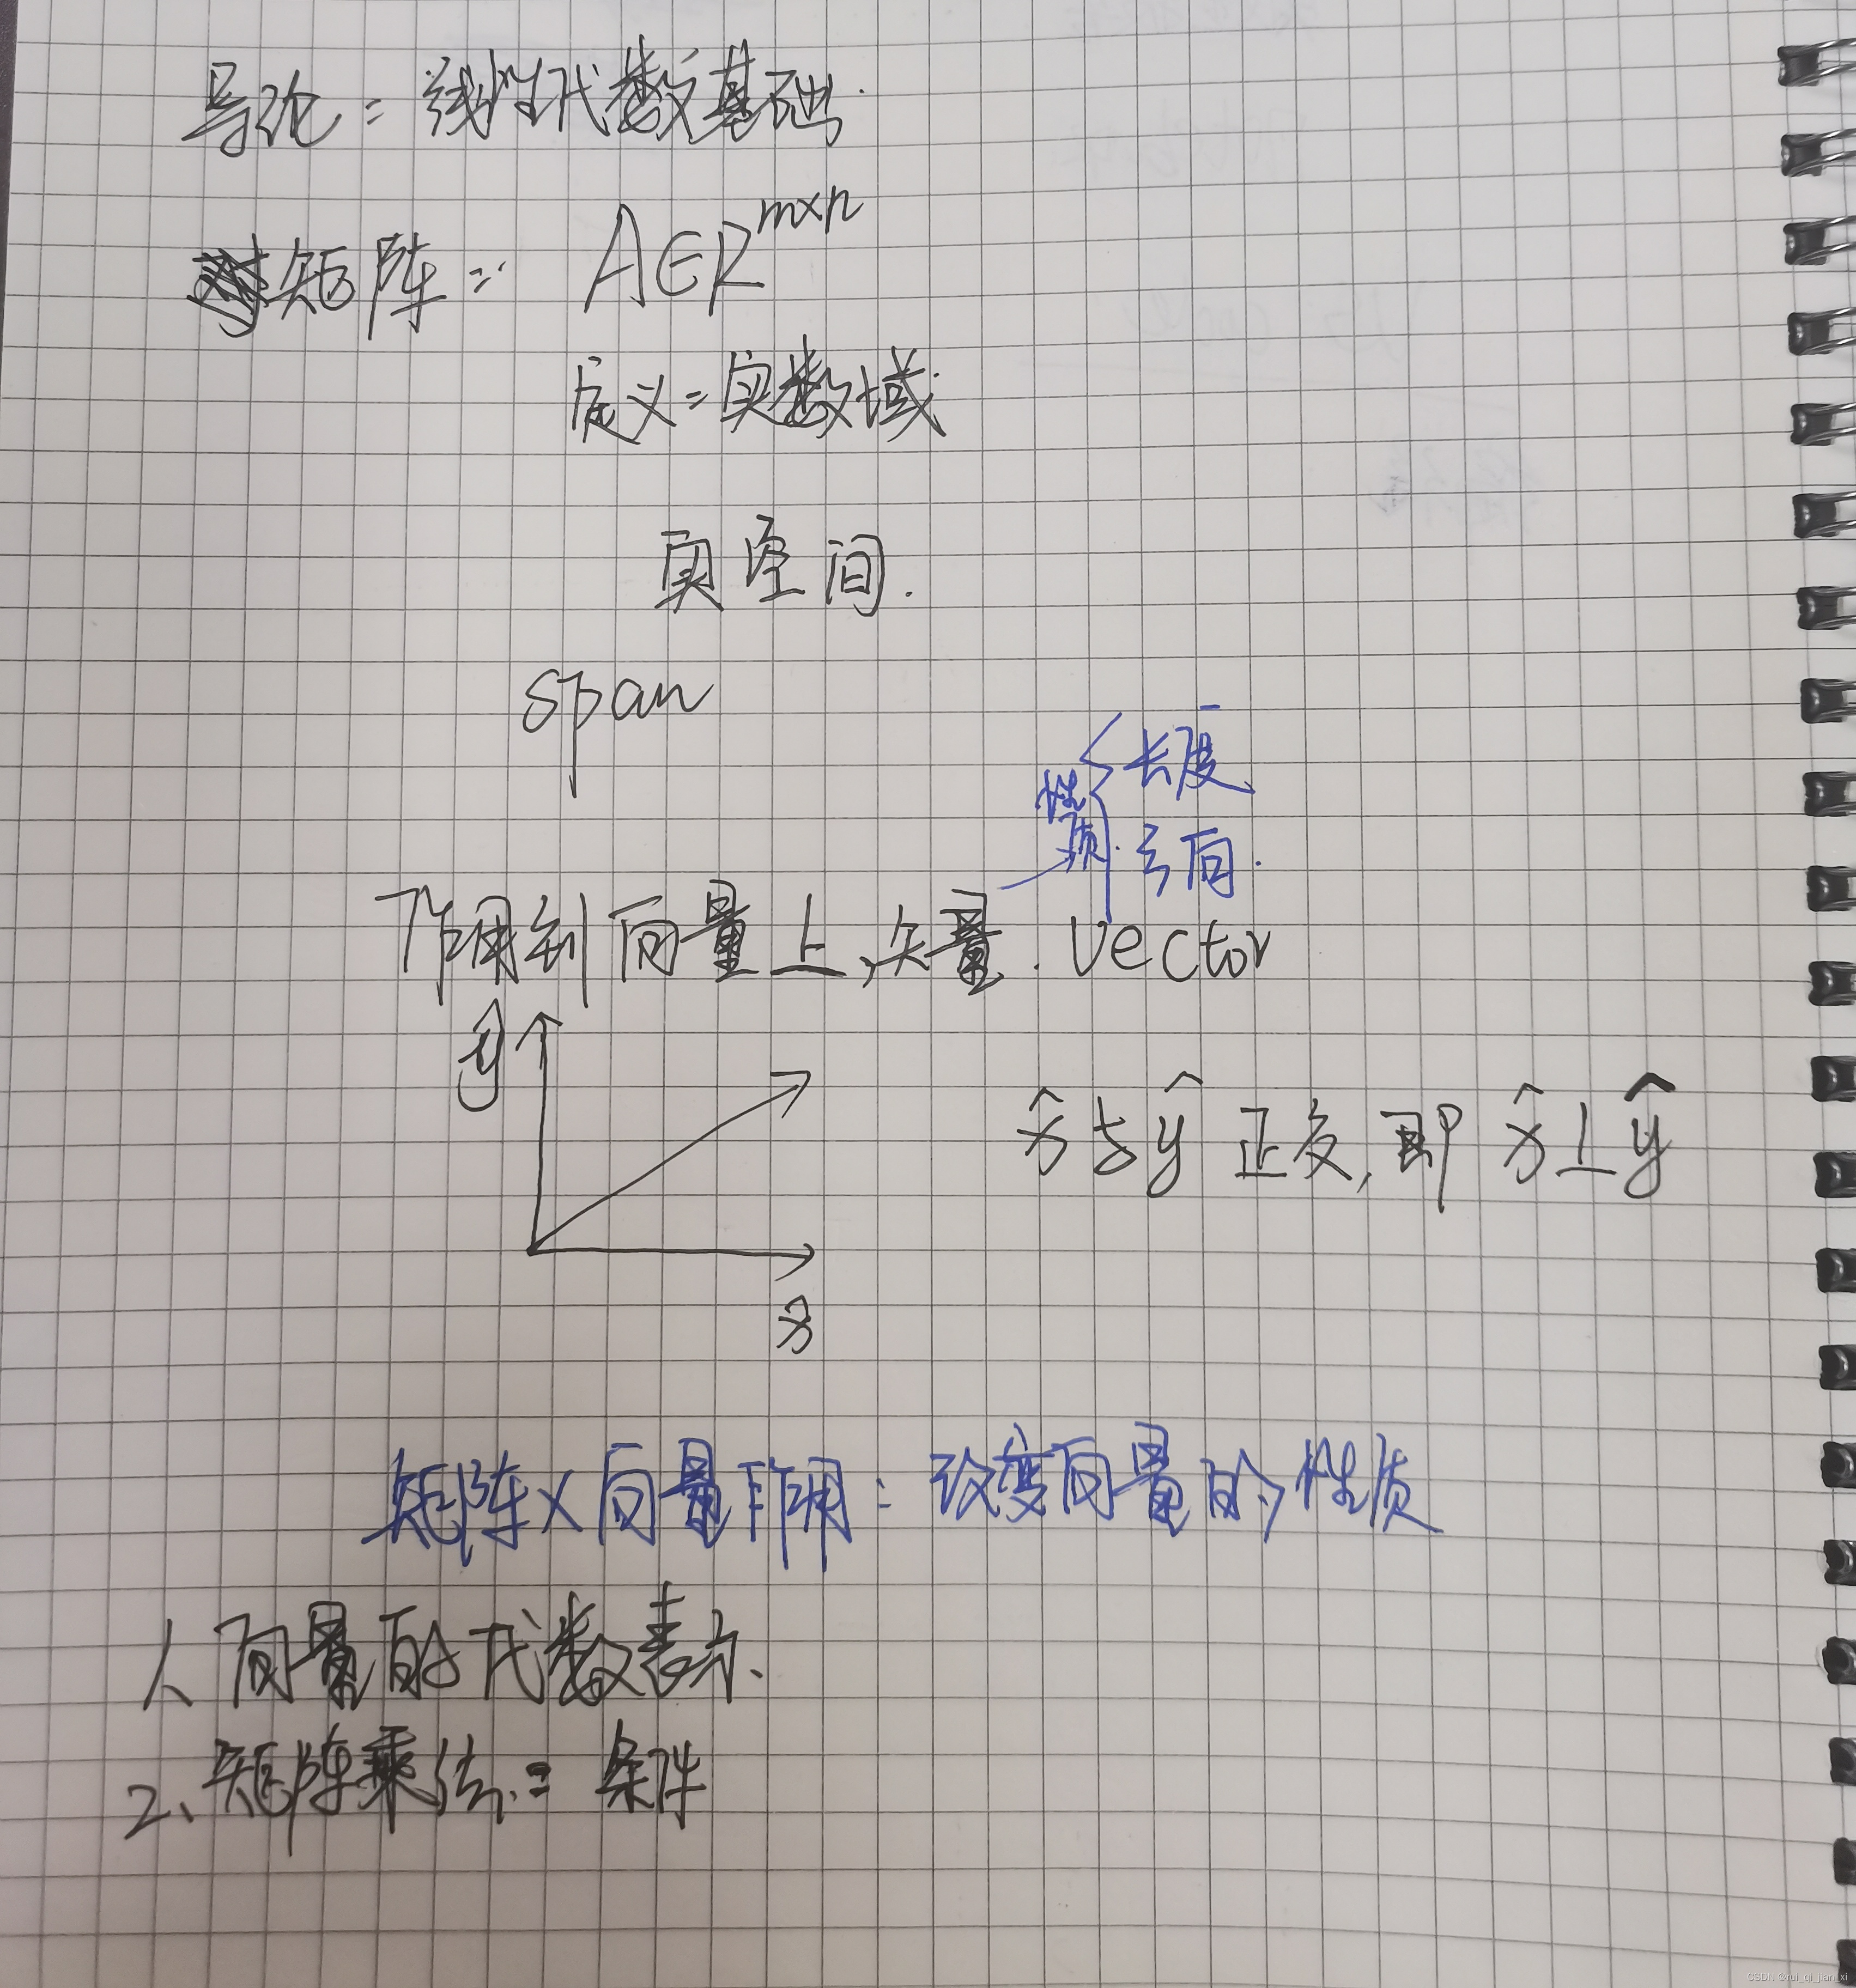 导论：线性代数基础.
矩阵： A∈R^{m×n}
定义：实数域.
实空间.
span
性质. { 长度、
方向.
作用到向量上，矢量. vector
ŷ
x̂与ŷ 正交，即 x̂⊥ŷ
x̂
矩阵×向量作用：改变向量的性质
1、向量的代数表示、
2、矩阵乘法：条件
CSDN @rui_qi_jian_xi